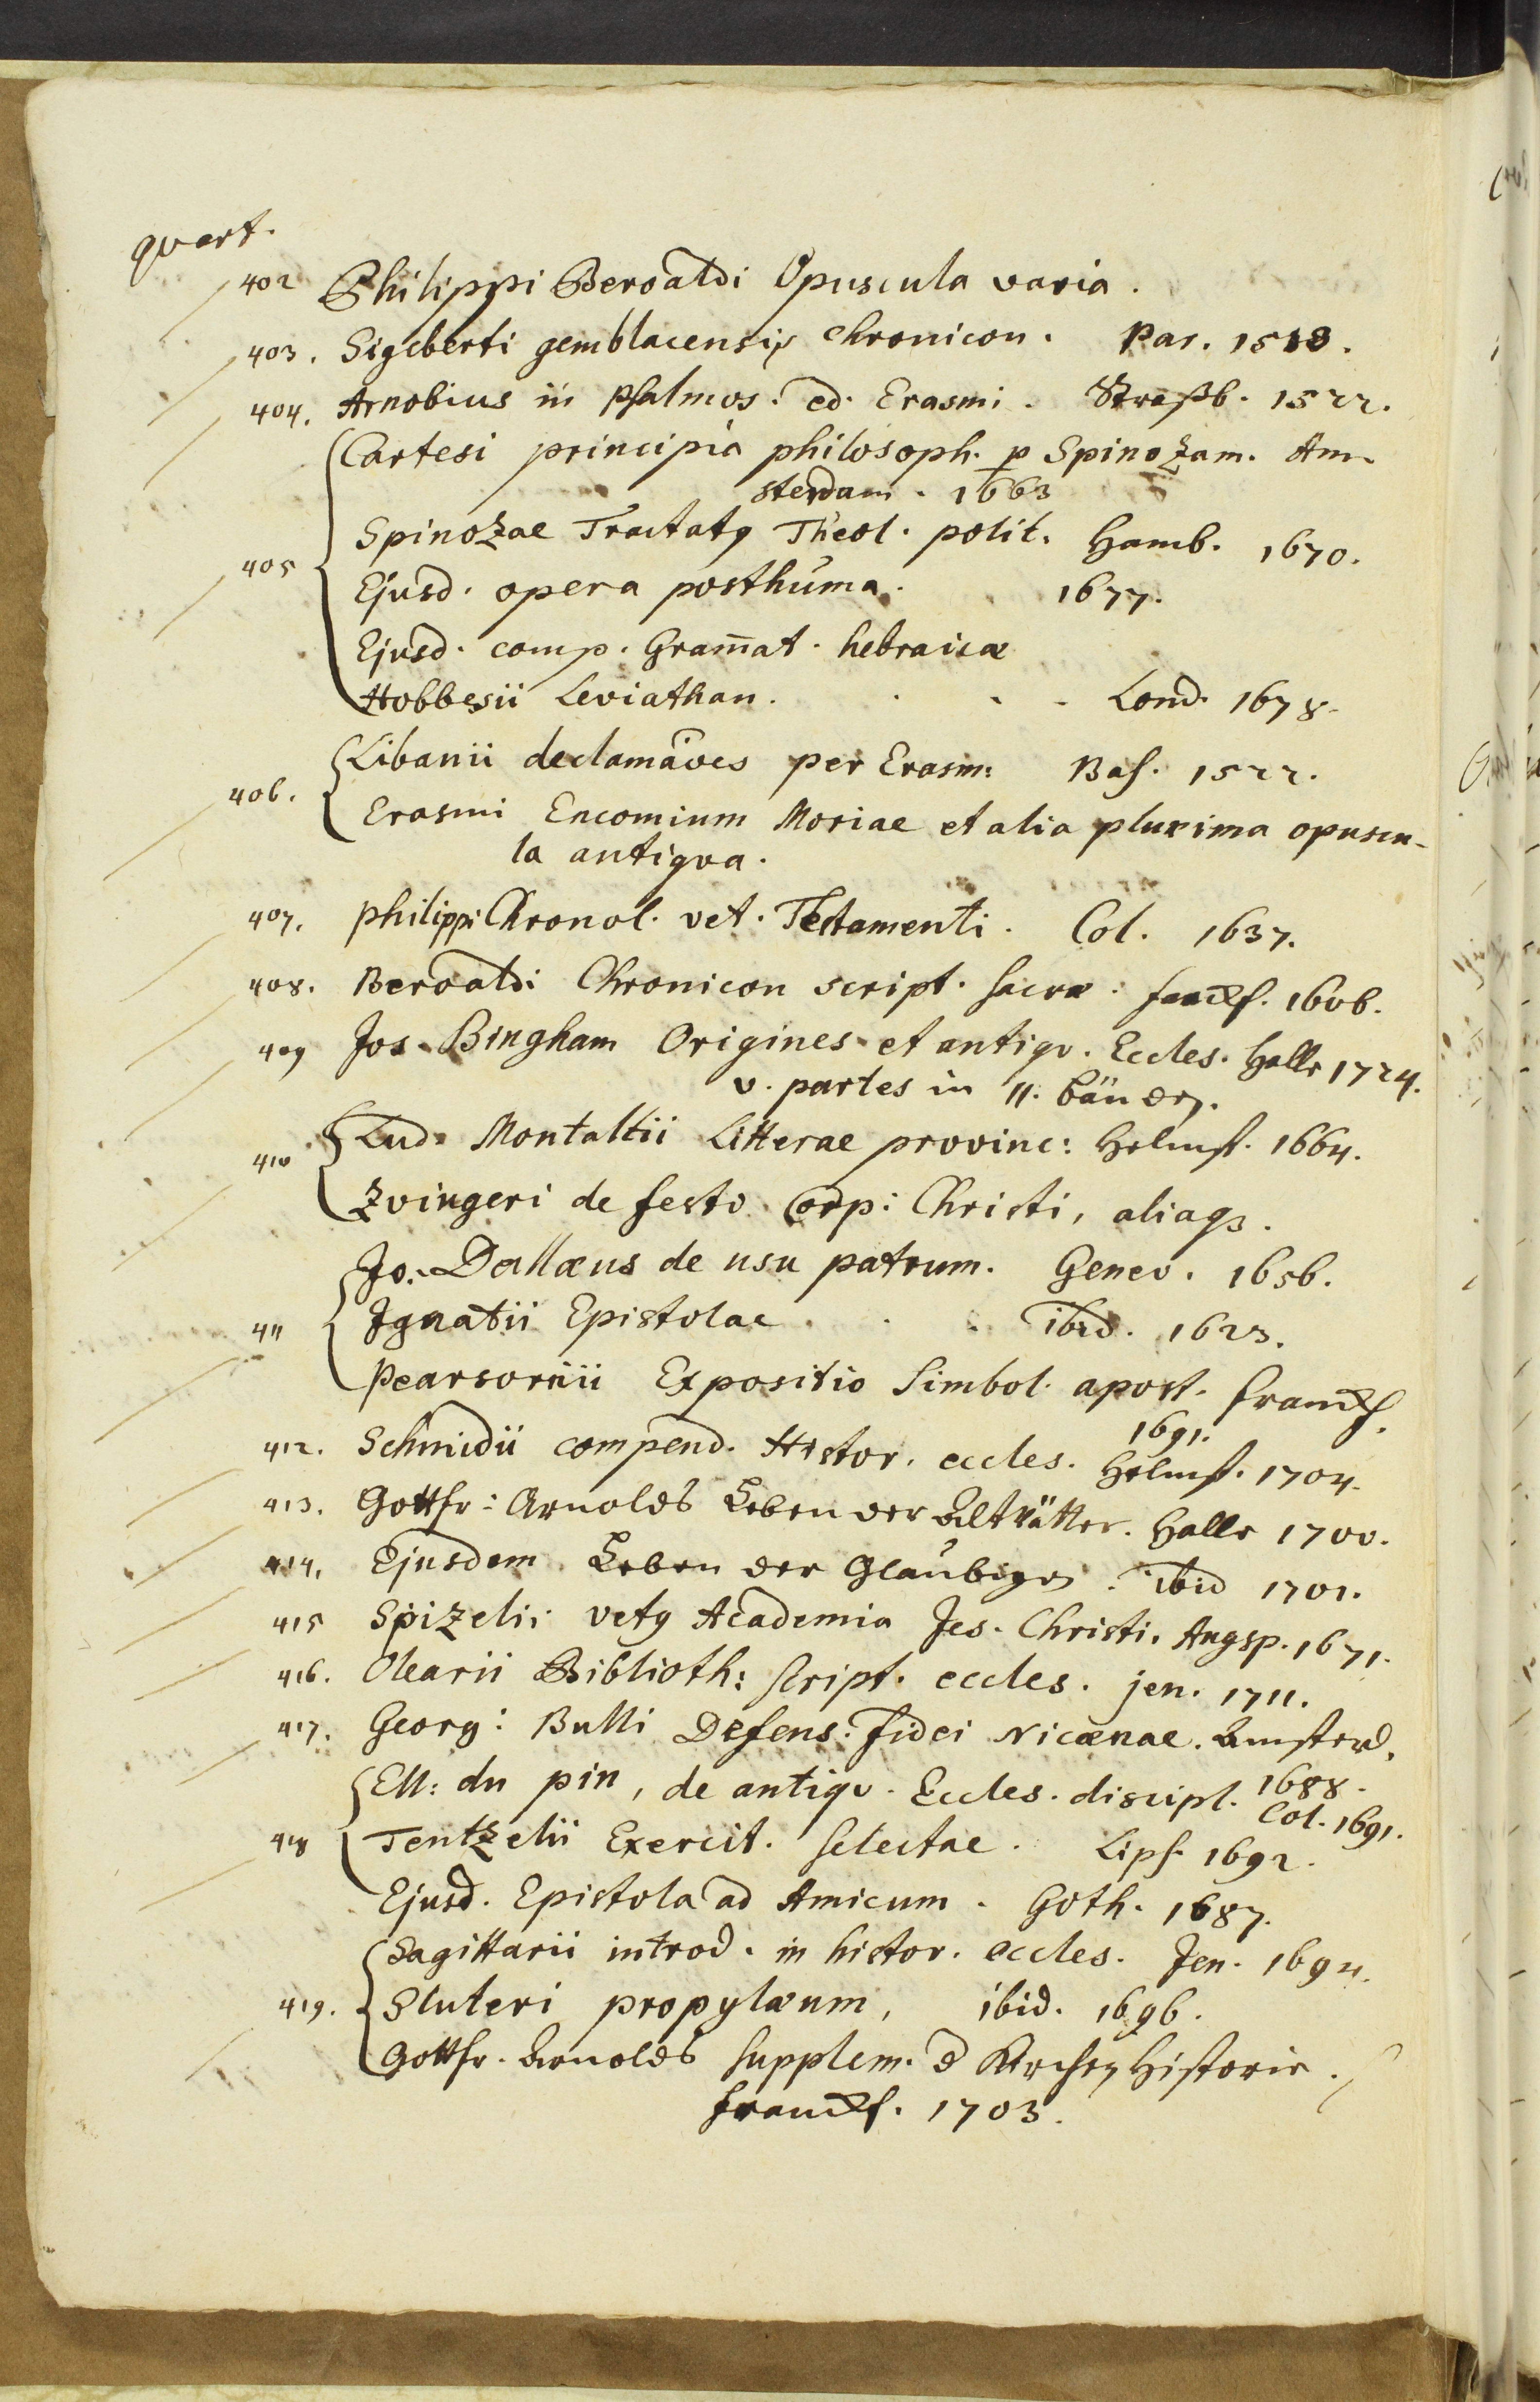 quart.
402 Philippi Beroaldi Opuscula varia.
403. Sigeberti gemblacensis Chronicon. Par. 1513.
404. Arnobius in Psalmos. ed. Erasmi. Straßb. 1522.
Cartesi principia philosoph. p Spinozam. Am-
sterdam. 1663
405 Spinozae Tractatq Theol. polit. Hamb. 1670.
Ejusd. opera posthuma. 1677.
Ejusd. comp. Gram̄at. hebraicæ
Hobbesii Leviathan. Lond. 1678.
406. Libanii declamāoes per Erasm: Bas. 1522.
Erasmi Encomium Moriae et alia plurima opuscu-
la antiqva.
407. Philippi Chronol. vet. Testamenti. Col. 1637.
408. Beroaldi Chronicon script. sacræ. Franckf. 1606.
409 Jos. Bingham Origines et antiqv. Eccles. Halle 1724.
v. partes in 11. bänden.
410 Lud. Montaltii Litterae provinc: Helmst. 1664.
Zvingeri de festo Corp: Christi, aliaqз.
Jo. Dallæus de usu patrum. Genev. 1656.
411 Ignatii Epistolae . . . ibid. 1623.
Pearsonii Expositio Simbol. apost. Franckf.
1691.
412. Schmidii compend. Histor. eccles. Helmst. 1704.
413. Gottfr: Arnolds Leben der Altvätter. Halle 1700.
414. Ejusdem Leben der Glaubigen. ibid 1701.
415 Spizelii vetq Academia Jes. Christi. Augsp. 1671.
416. Olearii Biblioth: script. eccles. jen. 1711.
417. Georg: Bulli Defens: fidei Nicænae. Amsterd.
1688.
Ell: du pin, de antiqv. Eccles. discipl. Col. 1691.
418 Tentzelii Exercit. selectae. Lips. 1692.
Ejusd. Epistola ad Amicum. Goth. 1687.
Sagittarii introd. in histor. eccles. Jen. 1694.
419. Sluteri propylæum, ibid. 1696.
Gottfr. Arnolds supplem. d Kirchen Historie.
Franckf. 1703.